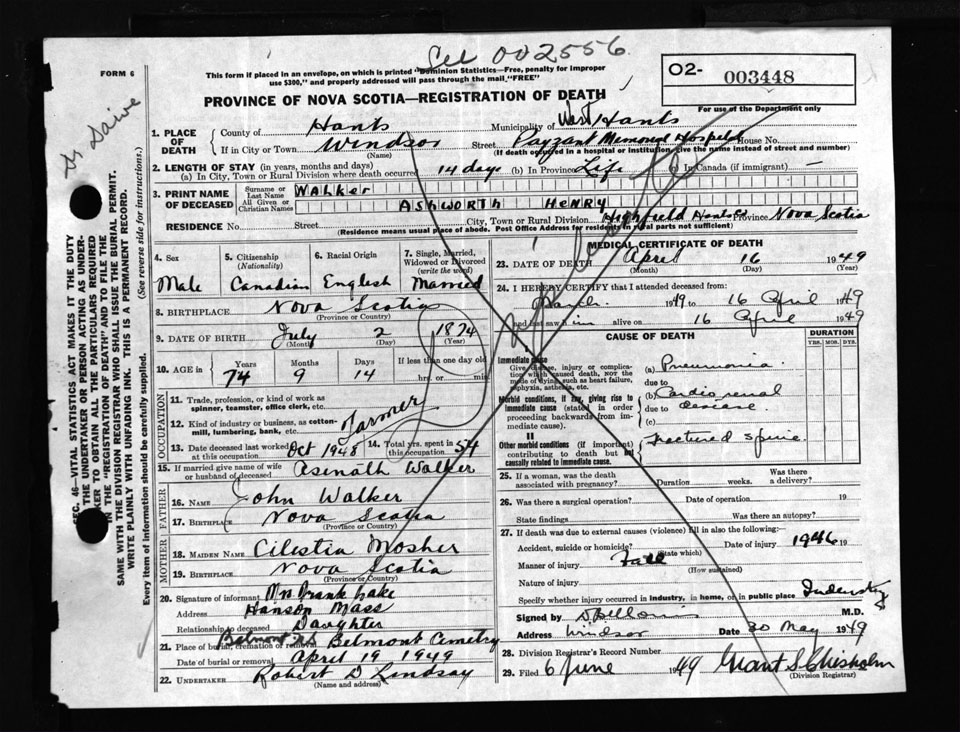 See 002556
FORM 6
This form if placed in an envelope, on which is printed "Dominion Statistics—Free, penalty for improper
use $300," and properly addressed will pass through the mail "FREE"
O2- 003448
For use of the Department only
PROVINCE OF NOVA SCOTIA—REGISTRATION OF DEATH
SEC. 46—VITAL STATISTICS ACT MAKES IT THE DUTY
OF THE UNDERTAKER OR PERSON ACTING AS UNDER-
TAKER TO OBTAIN ALL THE PARTICULARS REQUIRED
IN THE "REGISTRATION OF DEATH" AND TO FILE THE
SAME WITH THE DIVISION REGISTRAR WHO SHALL ISSUE THE BURIAL PERMIT.
WRITE PLAINLY WITH UNFADING INK. THIS IS A PERMANENT RECORD.
Every item of information should be carefully supplied. (See reverse side for instructions.)
1. PLACE OF DEATH County of Hants Municipality of West Hants
If in City or Town Windsor (Name) Street Payzant Memorial Hospital House No.
(If death occurred in a hospital or institution, give the name instead of street and number)
2. LENGTH OF STAY (in years, months and days)
(a) In City, Town or Rural Division where death occurred 14 days (b) In Province Life (c) In Canada (if immigrant) —
3. PRINT NAME OF DECEASED Surname or Last Name WALKER
All Given or Christian Names ASHWORTH HENRY
RESIDENCE No. Street City, Town or Rural Division Highfield Hants Co Province Nova Scotia
(Residence means usual place of abode. Post Office Address for residents in rural parts not sufficient)
4. Sex Male
5. Citizenship (Nationality) Canadian
6. Racial Origin English
7. Single, Married, Widowed or Divorced (write the word) Married
8. BIRTHPLACE Nova Scotia
(Province or Country)
9. DATE OF BIRTH July 2 1874
(Month) (Day) (Year)
10. AGE in Years 74 Months 9 Days 14 If less than one day old hrs. or min.
OCCUPATION
11. Trade, profession, or kind of work as
spinner, teamster, office clerk, etc. Farmer
12. Kind of industry or business, as cotton-
mill, lumbering, bank, etc.
13. Date deceased last worked at this occupation Oct 1948 14. Total yrs. spent in this occupation 54
15. If married give name of wife or husband of deceased Asenath Walker
FATHER
16. NAME John Walker
17. BIRTHPLACE Nova Scotia
(Province or Country)
MOTHER
18. MAIDEN NAME Cilestia Mosher
19. BIRTHPLACE Nova Scotia
(Province or Country)
20. Signature of informant Mrs Frank Lake
Address Hanson Mass
Relationship to deceased Daughter
21. Place of burial, cremation or removal Belmont NS Belmont Cemetry
Date of burial or removal April 19 1949
22. UNDERTAKER Robert D Lindsay
(Name and address)
MEDICAL CERTIFICATE OF DEATH
23. DATE OF DEATH April 16 1949
(Month) (Day) (Year)
24. I HEREBY CERTIFY that I attended deceased from:
March 1949 to 16 April 1949
and last saw him alive on 16 April 1949
CAUSE OF DEATH DURATION
YRS. MOS. DYS.
Immediate cause
Give disease, injury or complica-
tion which caused death, not the
mode of dying, such as heart failure,
asphyxia, asthenia, etc.
(a) Pneumonia
due to
Morbid conditions, if any, giving rise to
immediate cause (stated in order
proceeding backwards from im-
mediate cause).
(b) Cardio renal
due to disease
(c)
II
Other morbid conditions (if important)
contributing to death but not
causally related to immediate cause.
Fractured spine.
25. If a woman, was the death associated with pregnancy? Duration weeks. Was there a delivery?
26. Was there a surgical operation? Date of operation 19
State findings Was there an autopsy?
27. If death was due to external causes (violence) fill in also the following:—
Accident, suicide or homicide? (State which) Date of injury 1946 19
Manner of injury Fall
(How sustained)
Nature of injury
Specify whether injury occurred in industry, in home, or in public place Industry
Signed by M.D.
Address Windsor Date 30 May 1949
28. Division Registrar's Record Number
29. Filed 6 June 1949 Grant S Chisholm
(Division Registrar)